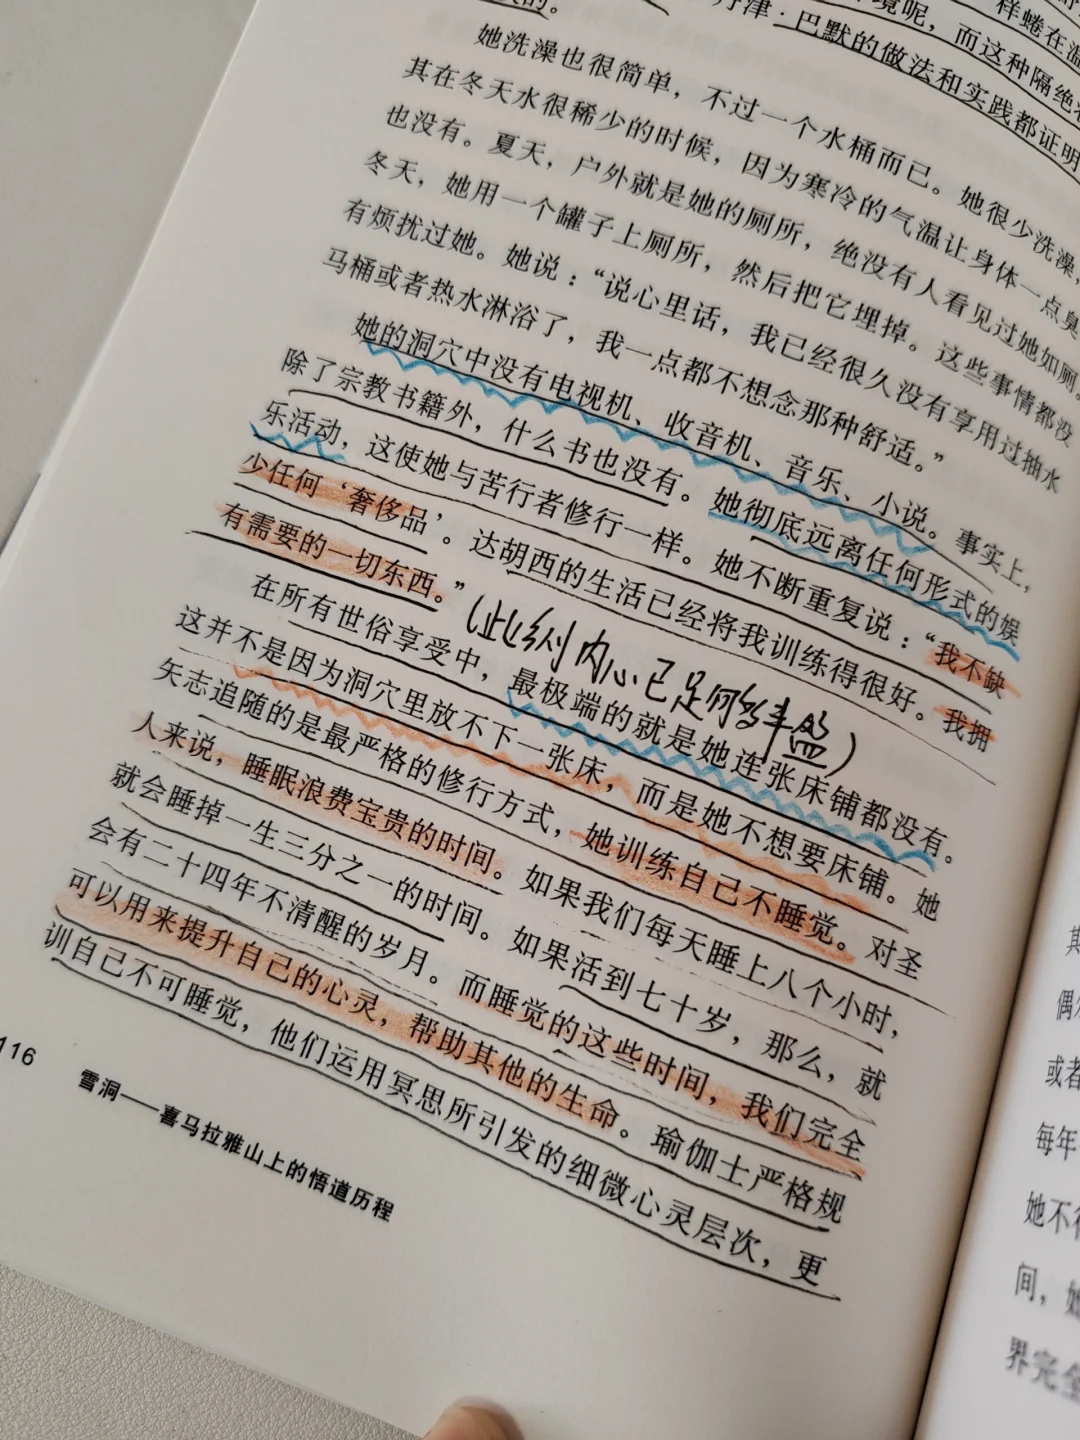 样蜷在温
境呢，而这种隔绝
丹津·巴默的做法和实践都证明
她洗澡也很简单，不过一个水桶而已。她很少洗澡，
其在冬天水很稀少的时候，因为寒冷的气温让身体一点臭
也没有。夏天，户外就是她的厕所，绝没有人看见过她如厕。
冬天，她用一个罐子上厕所，然后把它埋掉。这些事情都没
有烦扰过她。她说：“说心里话，我已经很久没有享用过抽水
马桶或者热水淋浴了，我一点都不想念那种舒适。”
她的洞穴中没有电视机、收音机、音乐、小说。事实上，
除了宗教书籍外，什么书也没有。她彻底远离任何形式的娱
乐活动，这使她与苦行者修行一样。她不断重复说：“我不缺
少任何‘奢侈品’。达胡西的生活已经将我训练得很好。我拥
有需要的一切东西。”
（此级别内心已足够丰盈）
在所有世俗享受中，最极端的就是她连张床铺都没有。
这并不是因为洞穴里放不下一张床，而是她不想要床铺。她
矢志追随的是最严格的修行方式，她训练自己不睡觉。对圣
人来说，睡眠浪费宝贵的时间。如果我们每天睡上八个小时，
就会睡掉一生三分之一的时间。如果活到七十岁，那么，就
会有二十四年不清醒的岁月。而睡觉的这些时间，我们完全
可以用来提升自己的心灵，帮助其他的生命。瑜伽士严格规
训自己不可睡觉，他们运用冥思所引发的细微心灵层次，更
116
雪洞——喜马拉雅山上的悟道历程
或者
每年
她不
间，她
界完全